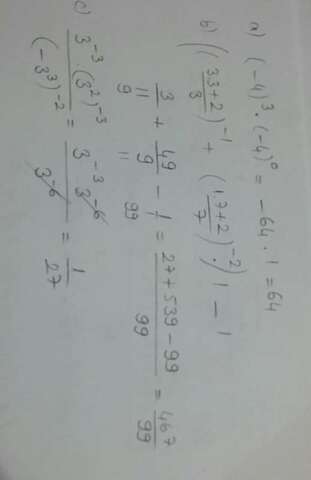 a) (-4)³ · (-4)⁰ = -64 · 1 = 64
b) ((33+2/3)⁻¹ + (1,7+2/7)⁻²) 1 - 1
3/11/9 + 49/9/11 - 1/99 = 27+539-99/99 = 467/99
c) 3⁻³ · (3²)⁻³/(-3³)⁻² = 3⁻³ 3⁻⁶/3⁻⁶ = 1/27